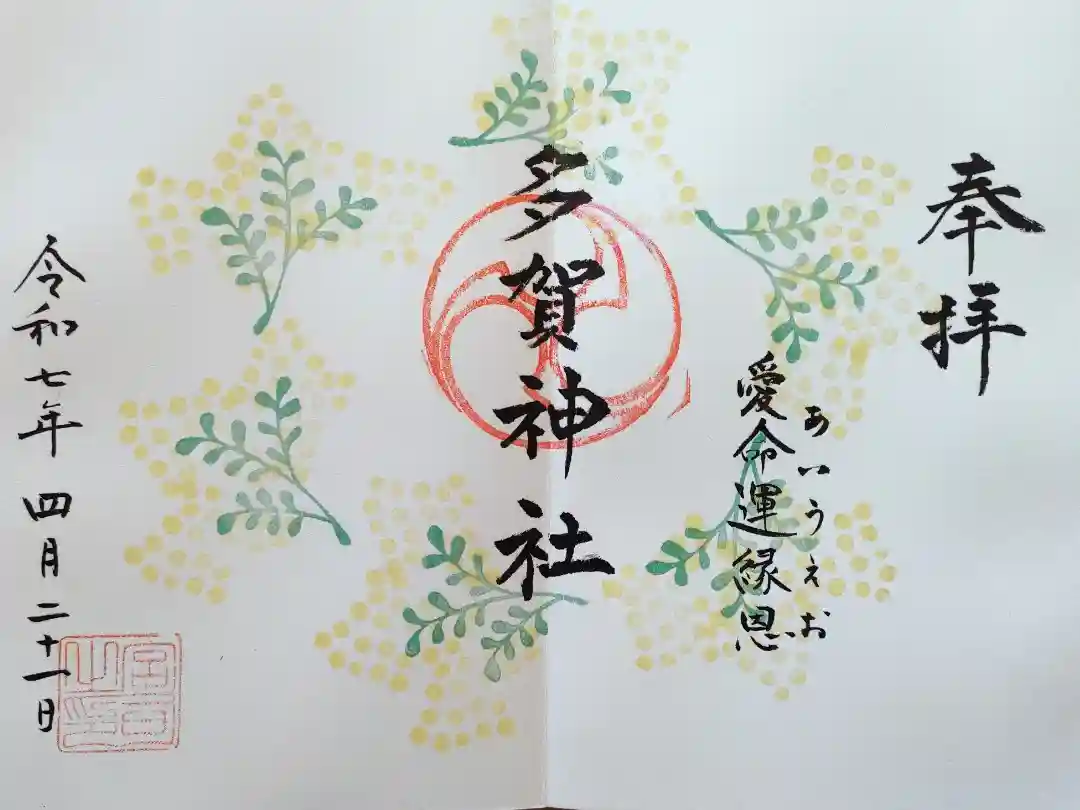 奉拝
あいうえお
愛命運縁恩
多賀神社
令和七年 四月二十一日
宮司之印